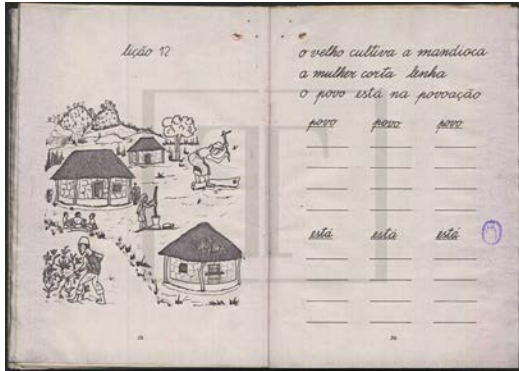 lição 12
o velho cultiva a mandioca
a mulher corta lenha
o povo está na povoação
povo povo povo
está está está